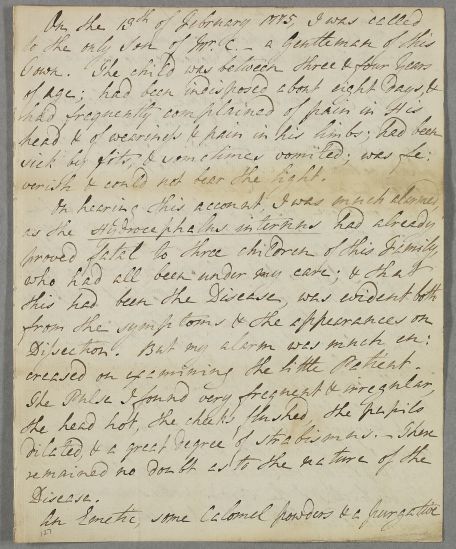 On the 13th of February 1775, I was called
to the only Son of Mr. C. – a Gentleman of this
Town. The child was between three & four Years
of age; had been indisposed about eight Days, &
had frequently complained of pain in His
head & of weariness & pain in his limbs; had been
sick by fits, & sometimes vomited; was fe:
verish & could not bear the light.
On hearing this account I was much alarmed,
as the Hydrocephalus internus had already
proved fatal to three children of this Family,
who had all been under my care; & that
this had been the Disease, was evident both
from the symptoms & the appearances on
Dissection. But my alarm was much en:
creased on examining the little Patient.
The Pulse I found very frequent & irregular,
the head hot, the cheeks flushed the pupils
dilated, & a great degree of strabismus. – There
remained no doubt as to the nature of the
Disease.
An Emetic, some Calomel powders & a purgative